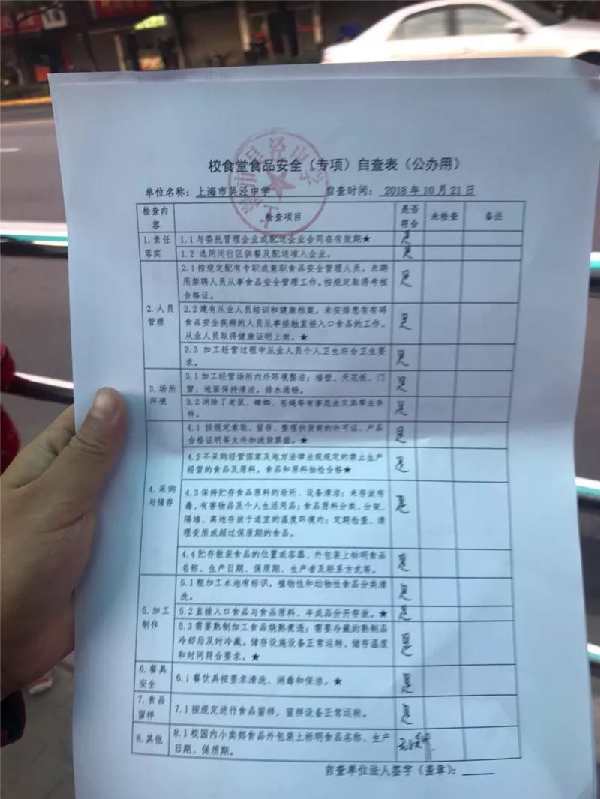 校食堂食品安全（专项）自查表（公办用）
单位名称：上海市吴泾中学 自查时间：2018年10月21日
检查内容 检查项目 是否符合 未检查 备注
1.责任落实
1.1与委托管理企业或配送企业合同在有效期★ 是
1.2 选用闵行区供餐及配送准入企业。 是
2.人员管理
2.1按规定配有专职或兼职食品安全管理人员。未聘
用禁聘人员从事食品安全管理工作。按规定取得考核
合格证。 是
2.2建有从业人员培训和健康档案。未安排患有有碍
食品安全疾病的人员从事接触直接入口食品的工作。
从业人员取得健康证明上岗。★ 是
2.3 加工经营过程中从业人员个人卫生符合卫生要
求。 是
3.场所环境
3.1加工经营场所内外环境整洁；墙壁、天花板、门
窗、地面保持清洁，排水通畅。 是
3.2消除了老鼠、蟑螂、苍蝇等有害昆虫及其孳生条
件。 是
4.采购与储存
4.1 按规定索取、留存、整理供货商的许可证、产品
合格证明等文件和进货票据。★ 是
4.2不采购经营国家及地方法律法规规定的禁止生产
经营的食品及原料。食品和原料抽检合格★ 是
4.3保持贮存食品原料的场所、设备清洁；未存放有
毒、有害物品及个人生活用品；食品原料分类、分架、
隔墙、离地存放于适宜的温度环境内；定期检查、清
理变质或超过保质期的食品。 是
4.4贮存散装食品的位置或容器、外包装上标明食品
名称、生产日期、保质期、生产者及联系方式等。
5.加工制作
5.1粗加工水池有标识。植物性和动物性食品分类清
洗。 是
5.2直接入口食品与食品原料、半成品分开存放。★ 是
5.3需要熟制加工食品烧熟煮透；需要冷藏的熟制品
冷却后及时冷藏。储存设施设备正常运转。储存温度
和时间符合要求。★ 是
6.餐具安全
6.1餐饮具按要求清洗、消毒和保洁。★ 是
7.食品留样
7.1按规定进行食品留样，留样设备正常运转。 是
8.其他
8.1校园内小卖部食品外包装上标明食品名称、生产
日期、保质期。
自查单位法人签字（盖章）：